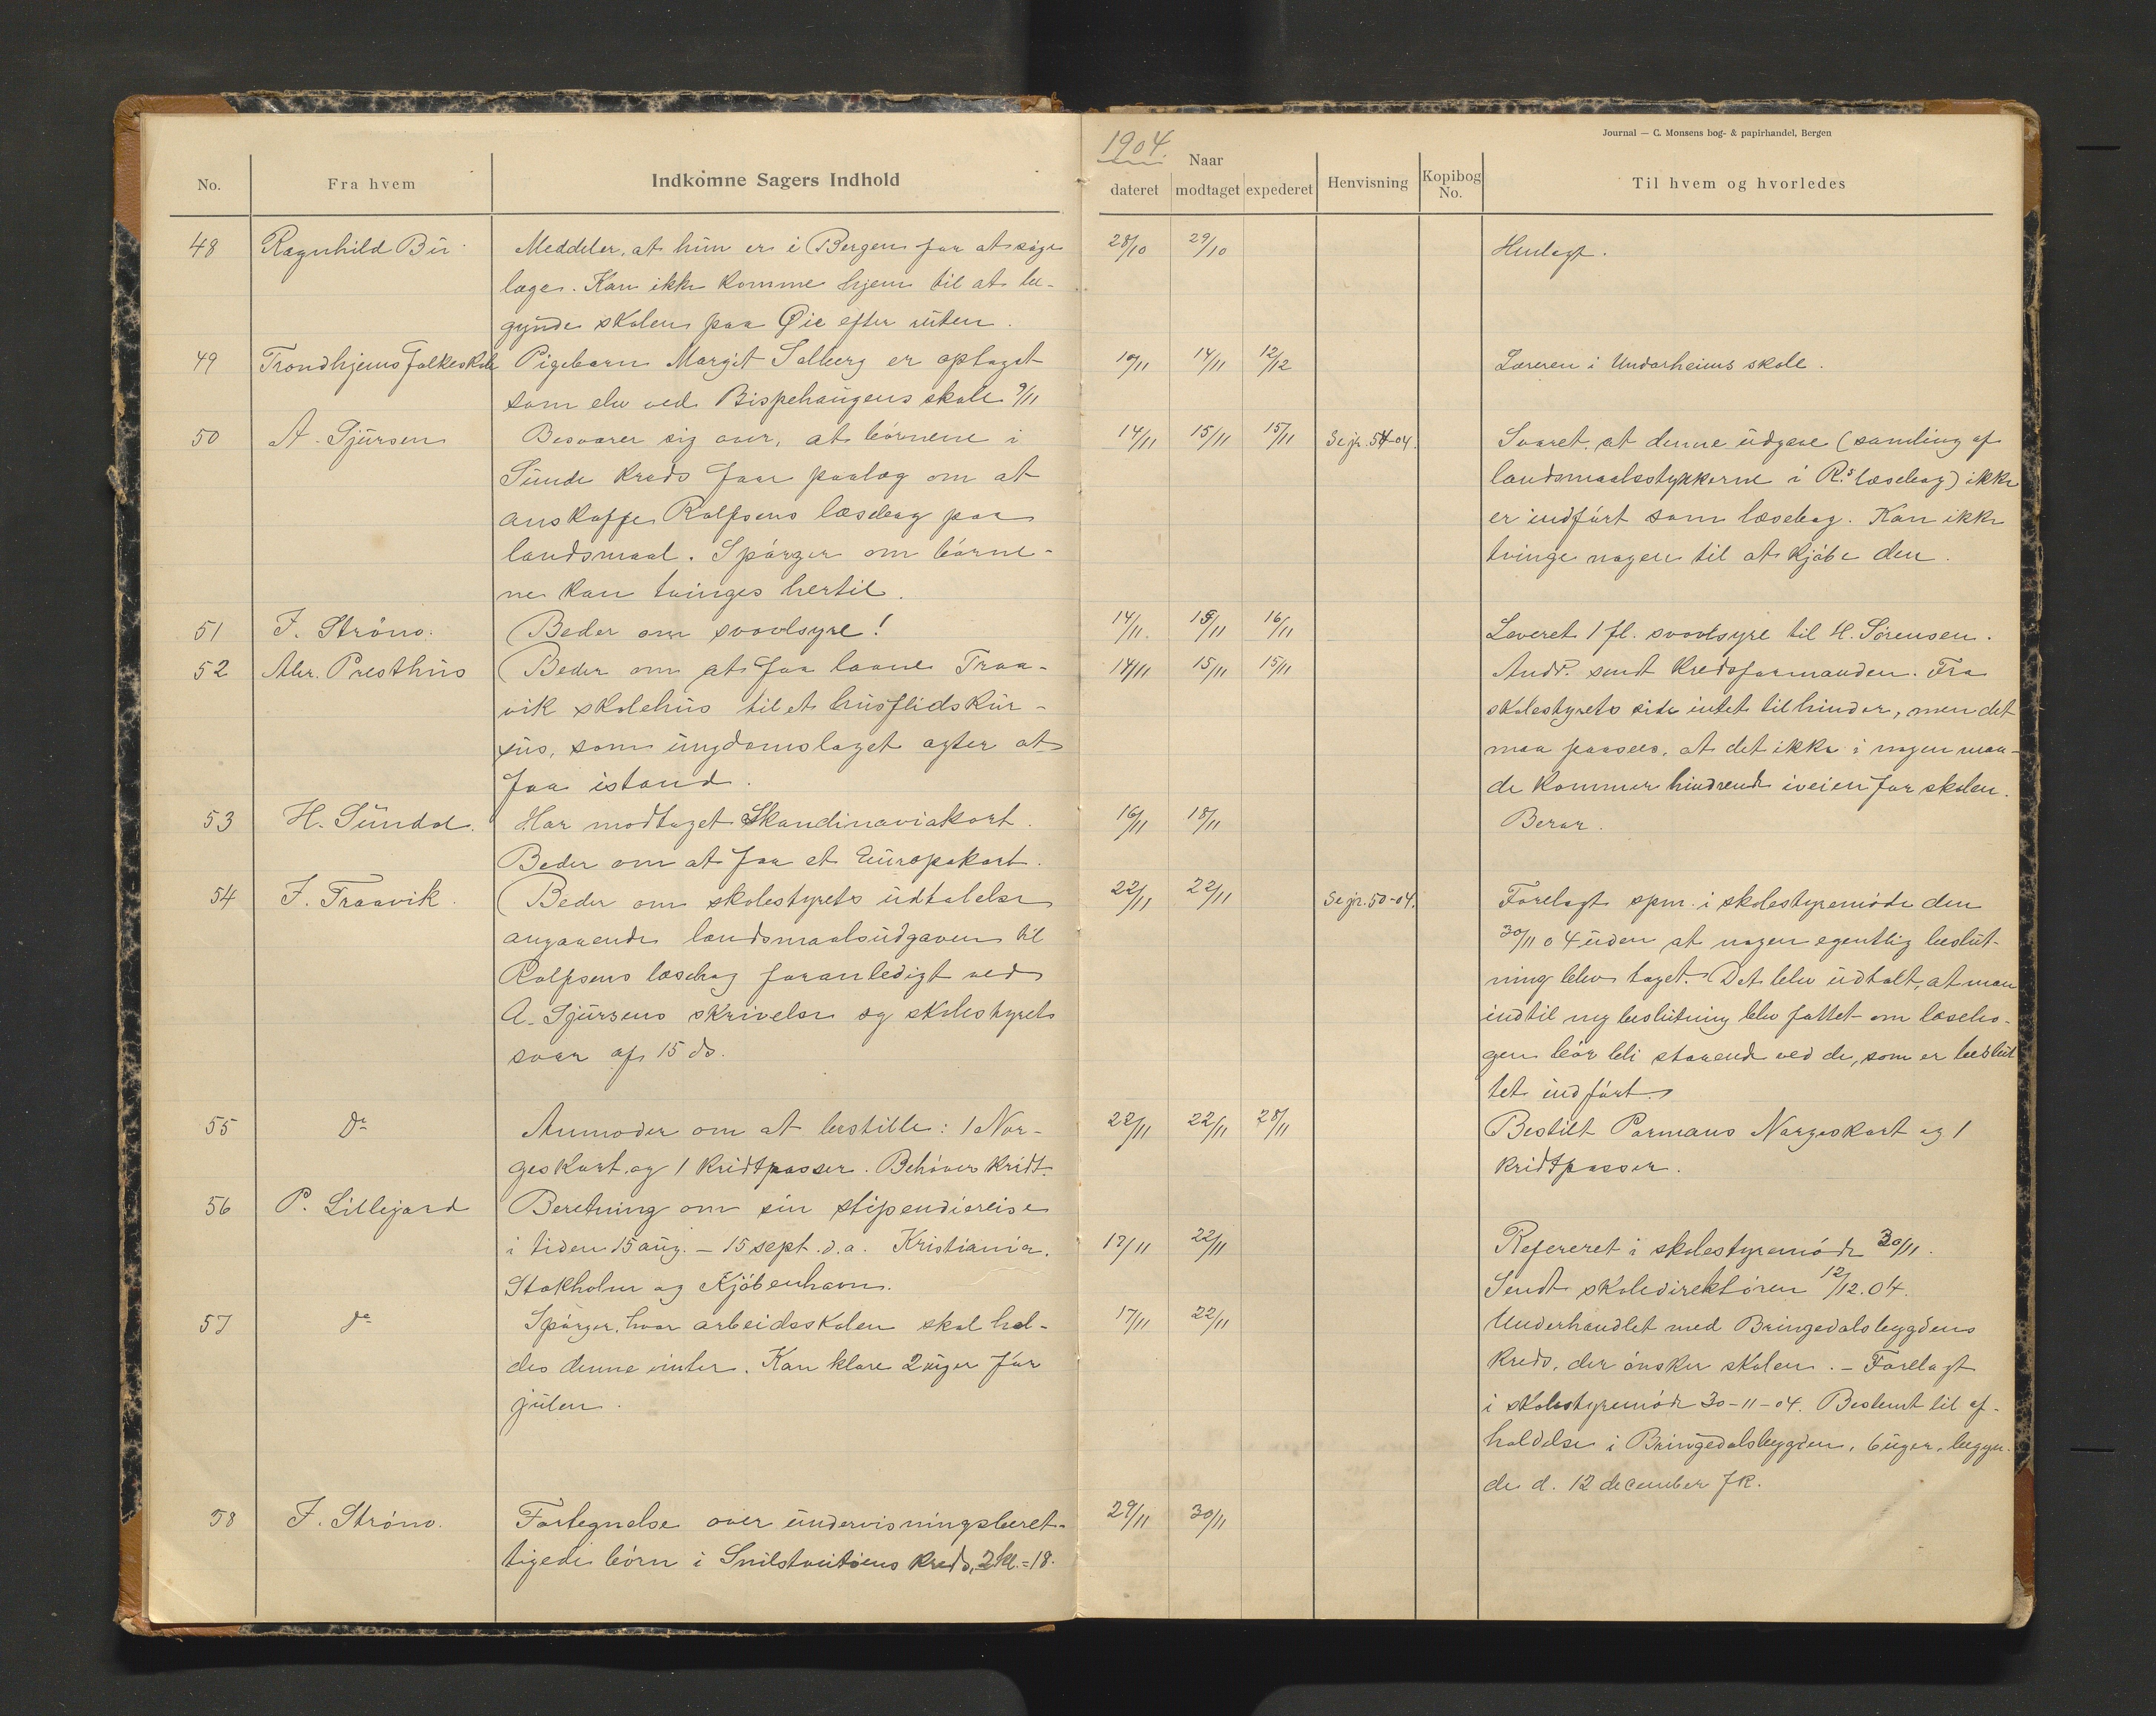 Journal — C. Monsens bog- & papirhandel, Bergen
1904.
No. Fra hvem Indkomne Sagers Indhold
Naar
dateret modtaget expederet Henvisning Kopibog No. Til hvem og hvorledes
48 Ragnhild Bu Meddeler, at hun er i Bergen for at søge 28/10 29/10 Henlagt.
læge. Kan ikke komme hjem til at be-
gynde skolen paa Øie efter ruten.
49 Trondhjems folkeskole Pigebarn Margit Solberg er optaget 10/11 14/11 12/12 Læreren i Undarheims skole.
som elev ved Bispehaugens skole 9/11
50 A. Sjursen Besværer sig over, at børnene i 14/11 15/11 15/11 Se jr. 54-04. Svaret, at denne udgave (samling af
Sunde kreds faar paalæg om at landsmaalsstykkerne i R.s læsebog) ikke
anskaffe Rolfsens læsebog paa er indført som læsebog. Kan ikke
landsmaal. Spørger om børne- tvinge nogen til at kjøbe den.
ne kan tvinges hertil.
51 J. Strøno. Beder om svovlsyre! 14/11. 15/11 16/11 Leveret 1 fl. svovlsyre til H. Sørensen.
52 Abr. Presthus Beder om at faa laane Traa- 14/11 15/11 15/11 Andr. sendt kredsformanden. Fra
vik skolehus til et husflidskur- skolestyrets side intet til hinder, men det
sus, som ungdomslaget agter at maa paasees, at det ikke i nogen maa-
faa istand. de kommer hindrende iveien for skolen.
53 H. Sundal. Har modtaget Skandinaviakort. 16/11 18/11 Beror.
Beder om at faa et Europakart.
54 J. Traavik. Beder om skolestyrets udtalelse 22/11 22/11 Se jr. 50-04. Forelagt spm. i skolestyremøde den
angaaende landsmaalsudgaven til 30/11 04 uden at nogen egentlig beslut-
Rolfsens læsebog foranlediget ved ning blev taget. Det blev udtalt, at man
A. Sjursens skrivelse og skolestyrets indtil ny beslutning blev fattet om læsebo-
svar af 15 ds. gen bør bli staaende ved de, som er beslut
tet indført.
55 Do Anmoder om at bestille: 1 Nor- 22/11 22/11 28/11 Bestilt Pormans Norgeskart og 1
geskart og 1 kridtpasser. Behøver kridt. kridtpasser.
56 P. Lillegard Beretning om sin stipendiereise
i tiden 15 aug. – 15 sept. d.a. Kristiania, 17/11 22/11 Refereret i skolestyremøde 30/11.
Stokholm og Kjøbenhavn. Sendt skoledirektøren 12/12.04.
57 do Spørger, hvor arbeidsskolen skal hol- 17/11 22/11 Underhandlet med Bringedalsbygdens
des denne vinter. Kan klare 2 uger før kreds, der ønsker skolen. – Forelagt
julen. i skolestyremøde 30-11-04. Bestemt til af-
holdelse i Bringedalsbygden, 6 uger, begyn-
de d. 12 december fk.
58 J. Strøno. Fortegnelse over undervisningsberet- 29/11 30/11
tigede børn i Snilstveitøens kreds, 2 kl. = 18.